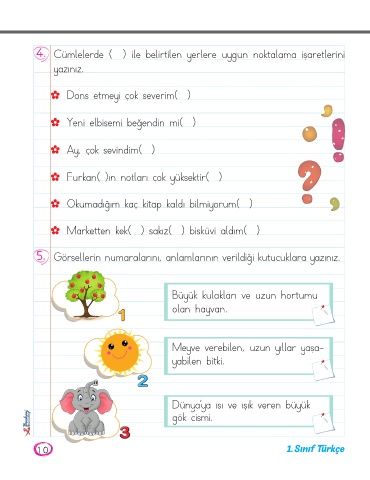 4. Cümlelerde ( ) ile belirtilen yerlere uygun noktalama işaretlerini
yazınız.
Dans etmeyi çok severim( )
Yeni elbisemi beğendin mi( )
Ay, çok sevindim( )
Furkan( )ın notları çok yüksektir( )
Okumadığım kaç kitap kaldı bilmiyorum( )
Marketten kek( ) sakız( ) bisküvi aldım( )
5. Görsellerin numaralarını, anlamlarının verildiği kutucuklara yazınız.
1
Büyük kulakları ve uzun hortumu
olan hayvan.
2
Meyve verebilen, uzun yıllar yaşa-
yabilen bitki.
3
Dünya'ya ısı ve ışık veren büyük
gök cismi.
10
1. Sınıf Türkçe